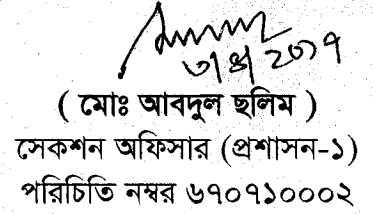 ৩১/৪/২০১৭
( মোঃ আবদুল ছলিম )
সেকশন অফিসার (প্রশাসন-১)
পরিচিতি নম্বর ৬৭০৭১০০০২